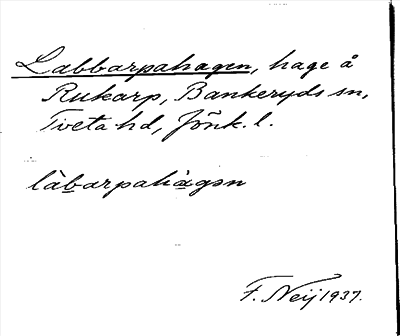 Labbarpahagen, hage å
Rukarp, Bankeryds sn,
Tveta hd, Jönk. l.
làbarpahàgən
F. Neij 1937.